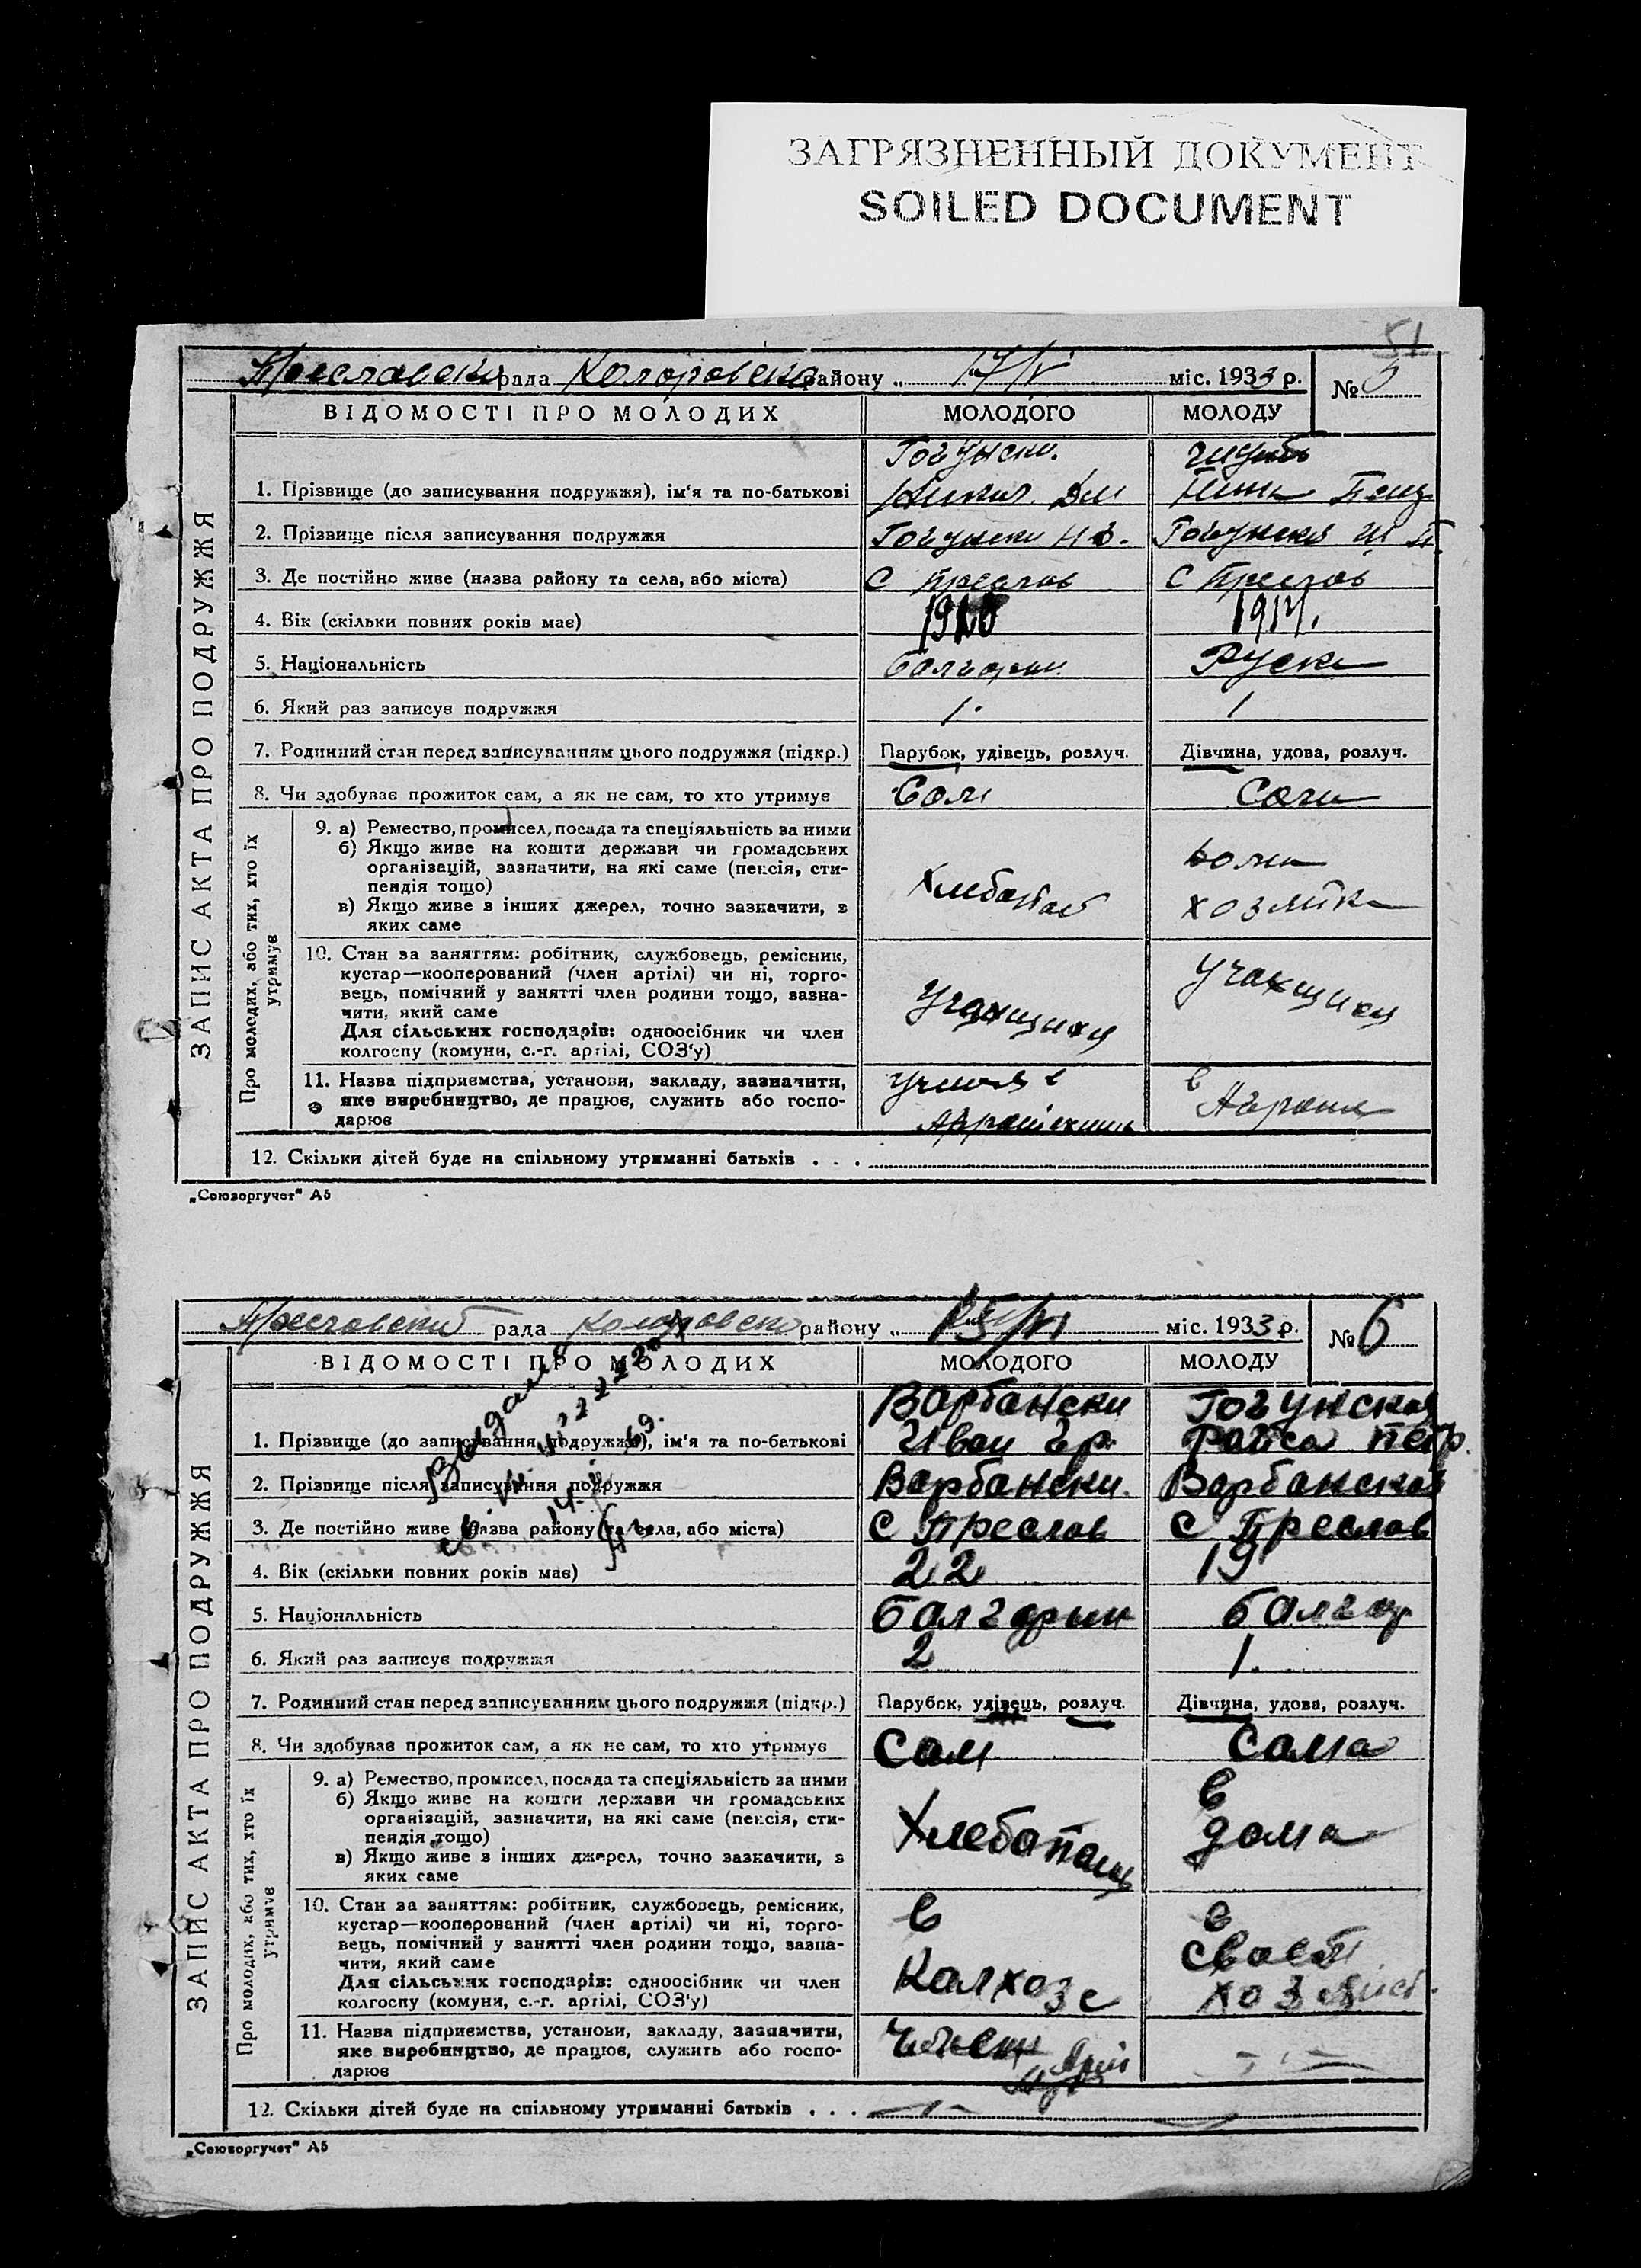 ЗАГРЯЗНЕННЫЙ ДОКУМЕНТ
SOILED DOCUMENT
51
Преславски рада Коларовско району „ 17/V міс. 1933 р. №
ВІДОМОСТІ ПРО МОЛОДИХ МОЛОДОГО МОЛОДУ
Гогунски.
1. Прізвище (до записування подружжя), ім'я та по-батькові
2. Прізвище після записування подружжя Гогунски Гогунская
3. Де постійно живе (назва району та села, або міста) с Преслав с Преслав
4. Вік (скільки повних років має) 1914.
5. Національність Руска
6. Який раз записує подружжя 1. 1
7. Родинний стан перед записуванням цього подружжя (підкр.) Парубок, удівець, розлуч. Дівчина, удова, розлуч.
8. Чи здобуває прожиток сам, а як не сам, то хто утримує Сам Сама
ЗАПИС АКТА ПРО ПОДРУЖЖЯ
Про молодих, або тих, хто їх утримує
9. а) Ремество, промисел, посада та спеціяльність за ними
б) Якщо живе на кошти держави чи громадських
організацій, зазначити, на які саме (пенсія, сти-
пендія тощо)
в) Якщо живе з інших джерел, точно зазначити, з
яких саме
хозяйка
10. Стан за заняттям: робітник, службовець, ремісник,
кустар—кооперований (член артілі) чи ні, торго-
вець, помічний у занятті член родини тощо, зазна-
чити, який саме
Для сільських господарів: одноосібник чи член
колгоспу (комуни, с.-г. артілі, СОЗ'у)
11. Назва підприємства, установи, закладу, зазначити,
яке виробництво, де працює, служить або госпо-
дарює
12. Скільки дітей буде на спільному утриманні батьків . . .
„Союзоргучет" А5
Преславский рада Коларовско району „ міс. 1933 р. № 6
ВІДОМОСТІ ПРО МОЛОДИХ МОЛОДОГО МОЛОДУ
Варбански Гогунская
1. Прізвище (до записування подружжя), ім'я та по-батькові Иван Гр. Раиса Петр.
2. Прізвище після записування подружжя Варбански. Варбанская
3. Де постійно живе (назва району та села, або міста) с Преслав с Преслав
4. Вік (скільки повних років має) 22 19
5. Національність Балгарин балгар
6. Який раз записує подружжя 2 1.
7. Родинний стан перед записуванням цього подружжя (підкр.) Парубок, удівець, розлуч. Дівчина, удова, розлуч.
8. Чи здобуває прожиток сам, а як не сам, то хто утримує Сам Сама
ЗАПИС АКТА ПРО ПОДРУЖЖЯ
Про молодих, або тих, хто їх утримує
9. а) Ремество, промисел, посада та спеціяльність за ними
б) Якщо живе на кошти держави чи громадських
організацій, зазначити, на які саме (пенсія, сти-
пендія тощо)
в) Якщо живе з інших джерел, точно зазначити, з
яких саме
Хлебопаш
в
дома
10. Стан за заняттям: робітник, службовець, ремісник,
кустар—кооперований (член артілі) чи ні, торго-
вець, помічний у занятті член родини тощо, зазна-
чити, який саме
Для сільських господарів: одноосібник чи член
колгоспу (комуни, с.-г. артілі, СОЗ'у)
в
Калхозе
в
своем
11. Назва підприємства, установи, закладу, зазначити,
яке виробництво, де працює, служить або госпо-
дарює
12. Скільки дітей буде на спільному утриманні батьків . . .
„Союзоргучет" А5